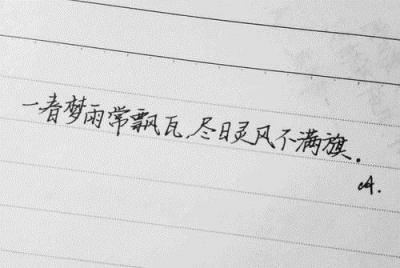 一春梦雨常飘瓦,尽日灵风不满旗.